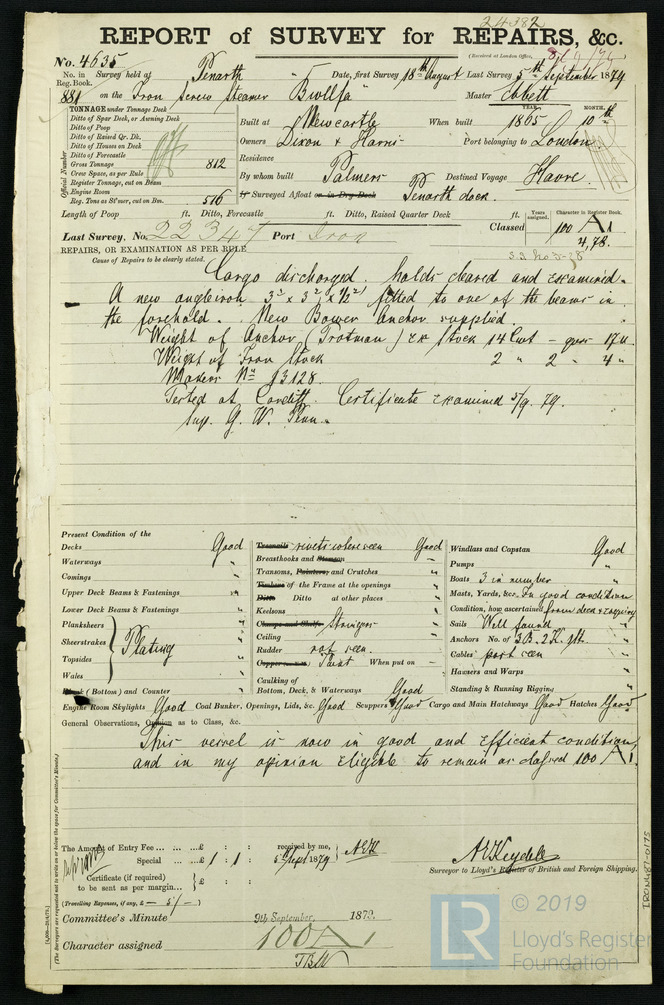 24382
REPORT of SURVEY for REPAIRS, &c.
(Received at London Office,
No. 4635
No. in Reg. Book. Survey held at Penarth Date, first Survey 18th August Last Survey 5th September 1879
881 on the Iron Screw Steamer Bwllfa Master Ebbett
TONNAGE under Tonnage Deck
Ditto of Spar Deck, or Awning Deck
Ditto of Poop
Ditto of Raised Qr. Dk.
Ditto of Houses on Deck
Ditto of Forecastle
Gross Tonnage 812
Crew Space, as per Rule
Register Tonnage, cut on Beam
Engine Room
Reg. Tons as St'mer, cut on Bm. 516
Official Number
Built at Newcastle When built YEAR. 1865 MONTH. 10th
Owners Dixon & Harris Port belonging to London
Residence
By whom built Palmers Destined Voyage Havre.
if Surveyed Afloat or in Dry Dock Penarth dock.
Length of Poop ft. Ditto, Forecastle ft. Ditto, Raised Quarter Deck ft.
Last Survey, No. 22347 Port Iron
Classed Years assigned. Character in Register Book. 100 A 1
4,78.
REPAIRS, OR EXAMINATION AS PER RULE
Cause of Repairs to be clearly stated.
Cargo discharged. holds cleared and examined.
A new angleiron fitted to one of the beams in
the forehold. New Bower Anchor supplied
Weight of Anchor (Trotman) ex Stock 14 Cwt - qrs 17 lb.
Weight of Iron Stock 2 " 2 " 4 "
Makers No 93128.
Tested at Cardiff. Certificate examined 5/9.79.
Sup. G. W. Penn.
Present Condition of the
Decks Good
Waterways "
Comings "
Upper Deck Beams & Fastenings "
Lower Deck Beams & Fastenings "
Planksheers
Sheerstrakes
Topsides
Wales
Plating "
Plank (Bottom) and Counter "
Treenails rivets where seen Good
Breasthooks and Stemson "
Transoms, Pointers, and Crutches "
Timbers of the Frame at the openings "
Ditto Ditto at other places "
Keelsons "
Clamps and Shelfs Stringers "
Ceiling "
Rudder not seen.
Paint When put on -
Caulking of
Bottom, Deck, & Waterways Good
Windlass and Capstan Good
Pumps "
Boats 3 in number "
Masts, Yards, &c. In good condition
Condition, how ascertained from deck & enquiry
Sails Well found
Anchors No. of 3B. 2K.
Cables part seen
Hawsers and Warps "
Standing & Running Rigging "
Engine Room Skylights Good Coal Bunker, Openings, Lids, &c. Good Scuppers Good Cargo and Main Hatchways Good Hatches Good
General Observations, Opinion as to Class, &c.
This vessel is now in good and efficient condition,
and in my opinion eligible to remain as classed 100 A 1.
The Amount of Entry Fee ... ...£ : : received by me,
Special ... ... ...£ 1 : 1 : 5th Sept 1879
Certificate (if required) to be sent as per margin... £ : :
(Travelling Expenses, if any, £ - 5/-)
A E Keydell
Surveyor to Lloyd's Register of British and Foreign Shipping.
Committee's Minute 9th September, 1879.
Character assigned 100 A 1
(The Surveyors are requested not to write on or below the space for Committee's Minute.)
IRON487-0175
LR
© 2019
Lloyd's Register
Foundation